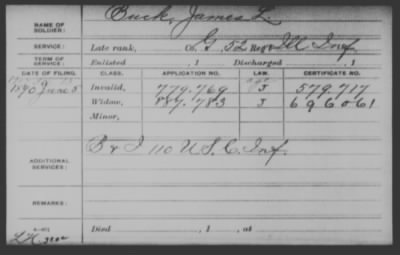 NAME OF SOLDIER: Buck, James L.
SERVICE: Late rank, Co. G, 52 Reg't Ill Inf.
TERM OF SERVICE: Enlisted , 1 Discharged , 1
DATE OF FILING. CLASS. APPLICATION NO. LAW. CERTIFICATE NO.
1890 June 5 Invalid, 779.769 J 579.717
Widow, 887.783 J 696061
Minor,
ADDITIONAL SERVICES: B & I 110 U.S.C. Inf.
REMARKS:
Died , 1 , at